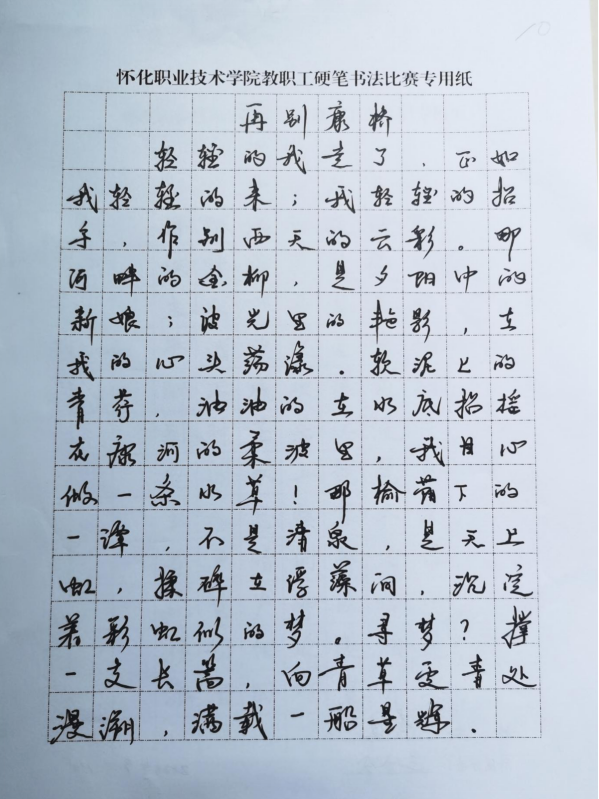 10
怀化职业技术学院教职工硬笔书法比赛专用纸
再别康桥
轻轻的我走了，正如
我轻轻的来；我轻轻的招
手，作别西天的云彩。那
河畔的金柳，是夕阳中的
新娘；波光里的艳影，在
我的心头荡漾。软泥上的
青荇，油油的在水底招摇
在康河的柔波里，我甘心
做一条水草！那榆荫下的
一潭，不是清泉，是天上
虹，揉碎在浮藻间，沉淀
着彩虹似的梦。寻梦？撑
一支长篙，向青草更青处
漫溯，满载一船星辉。